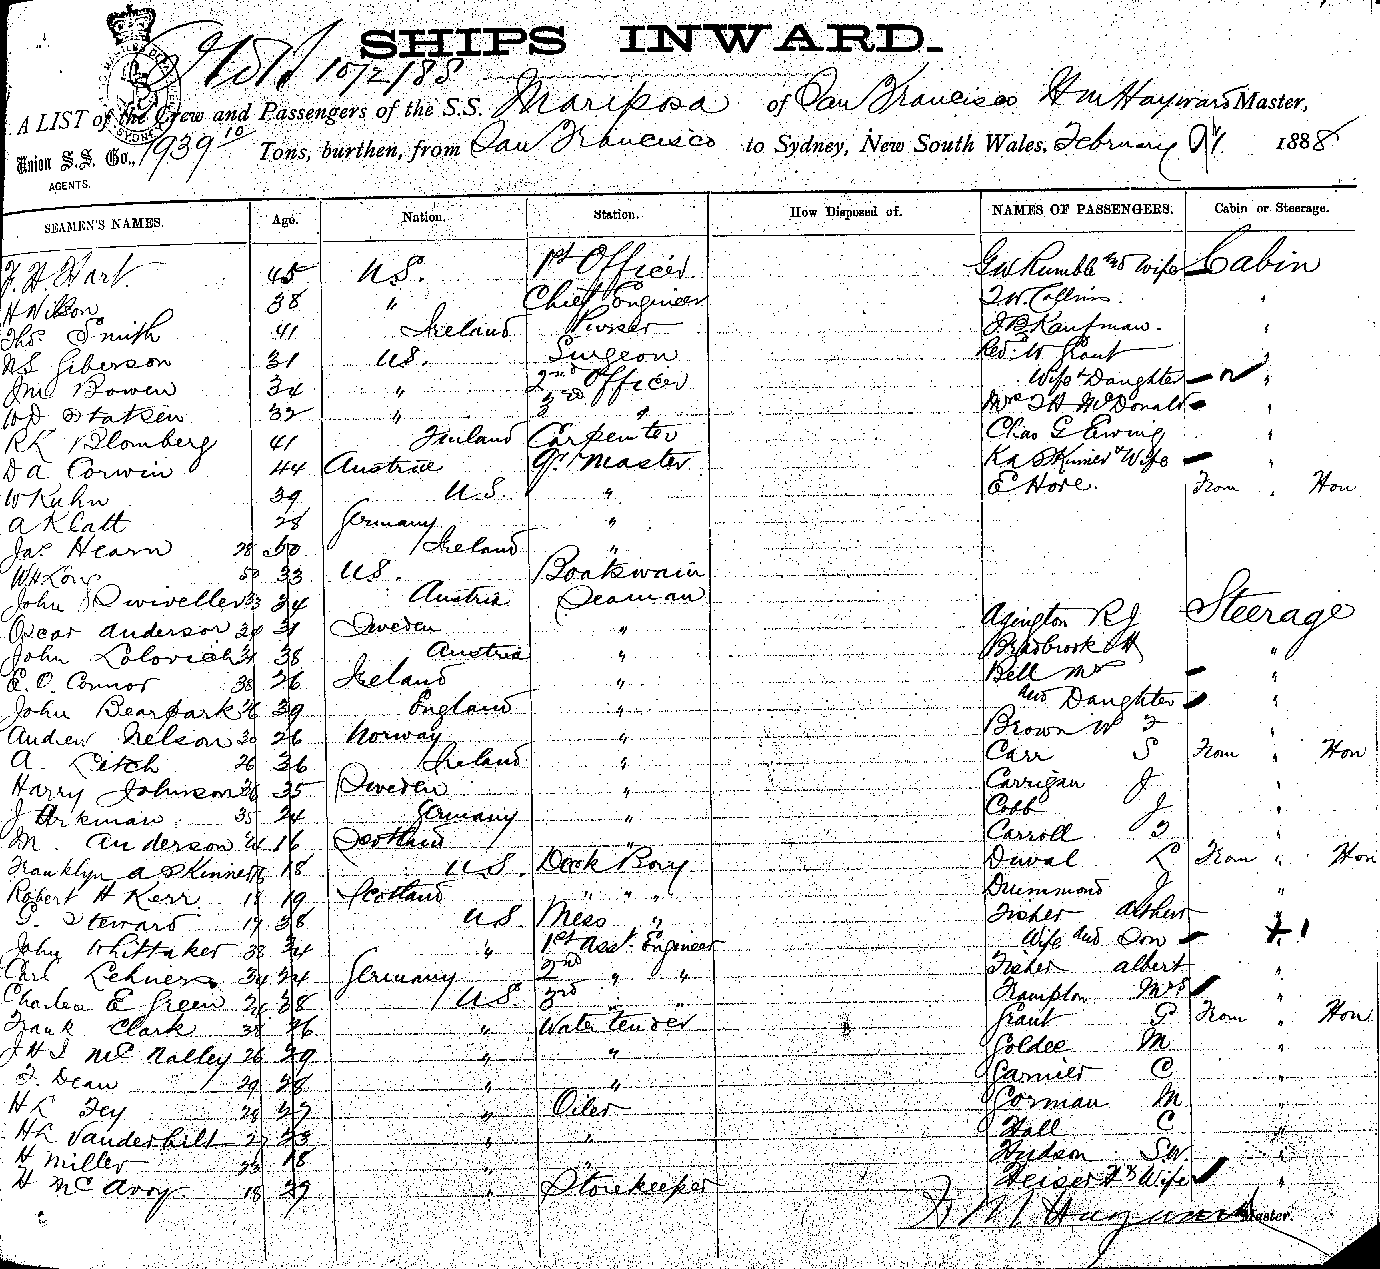 SHIPS INWARD.
10/2/88
A LIST of the Crew and Passengers of the S.S. Mariposa of San Francisco H M Hayward Master,
Union S.S. Co., 1939 10 Tons, burthen, from San Francisco to Sydney, New South Wales, February 1888
AGENTS.
SEAMEN'S NAMES. Age. Nation. Station. How Disposed of. NAMES OF PASSENGERS. Cabin or Steerage.
F. H. Hart. 45 U.S. 1st Officer G W Rumble and Wife Cabin
H Wilson 38 " Chief Engineer T. W. Collins "
Thos Smith 41 Ireland Purser J. B. Kaufman. "
N S Giberson 31 U.S. Surgeon Revd W Grant
Jno Bowen 34 " 2nd Officer Wife & Daughter "
W D 32 " 3rd " Mrs T H McDonald "
R K Blomberg 41 Finland Carpenter Chas G Ewing "
D A Corwin 44 Austria Qr Master & Wife "
W Kuhn 39 U.S. " E Hore. From " Hon
A Klatt 28 Germany "
Jas Hearn 28 50 Ireland "
W H Long 50 33 U.S. Boatswain
John 33 34 Austria Seaman
Oscar Anderson 34 31 Sweden " Agington R J Steerage
John Lolovich 31 38 Austria " Bradbrook H "
E. O. Connor 38 26 Ireland " Bell Mr "
John Bearpark 26 39 England " and Daughter "
Andrew Nelson 26 Norway " Brown W F
A. Leitch 26 36 Ireland " Carr S From " Hon
Harry Johnson 36 35 Sweden " Carrigan J "
J Arkman 35 24 Germany " Cobb J "
M. Anderson 24 16 Scotland " Carroll T "
Franklyn A Skinner 16 18 U.S. Deck Boy Duval L From " Hon
Robert H Kerr 18 19 Scotland " " Drummond J "
Steward 19 38 U S Mess " Fisher Arthur "
John Whittaker 38 34 " 1st Asst Engineer Wife and Son
Carl Lehners 34 24 Germany 2nd " " Fisher Albert "
Charles E Green 24 38 U S 3rd " " Frampton Mrs "
Frank Clark 38 26 " Water tender Grant G From " Hon
J H I McNalley 26 29 " " Goldee M "
F. Dean 29 28 " " Garnier C "
H L Fey 28 27 " Oiler Gorman M "
H L Vanderbilt 27 23 " " Hall C "
H Miller 23 18 " " Hudson S W "
H McAvoy 18 27 " Storekeeper Heiser H & Wife "
H M Hayward Master.